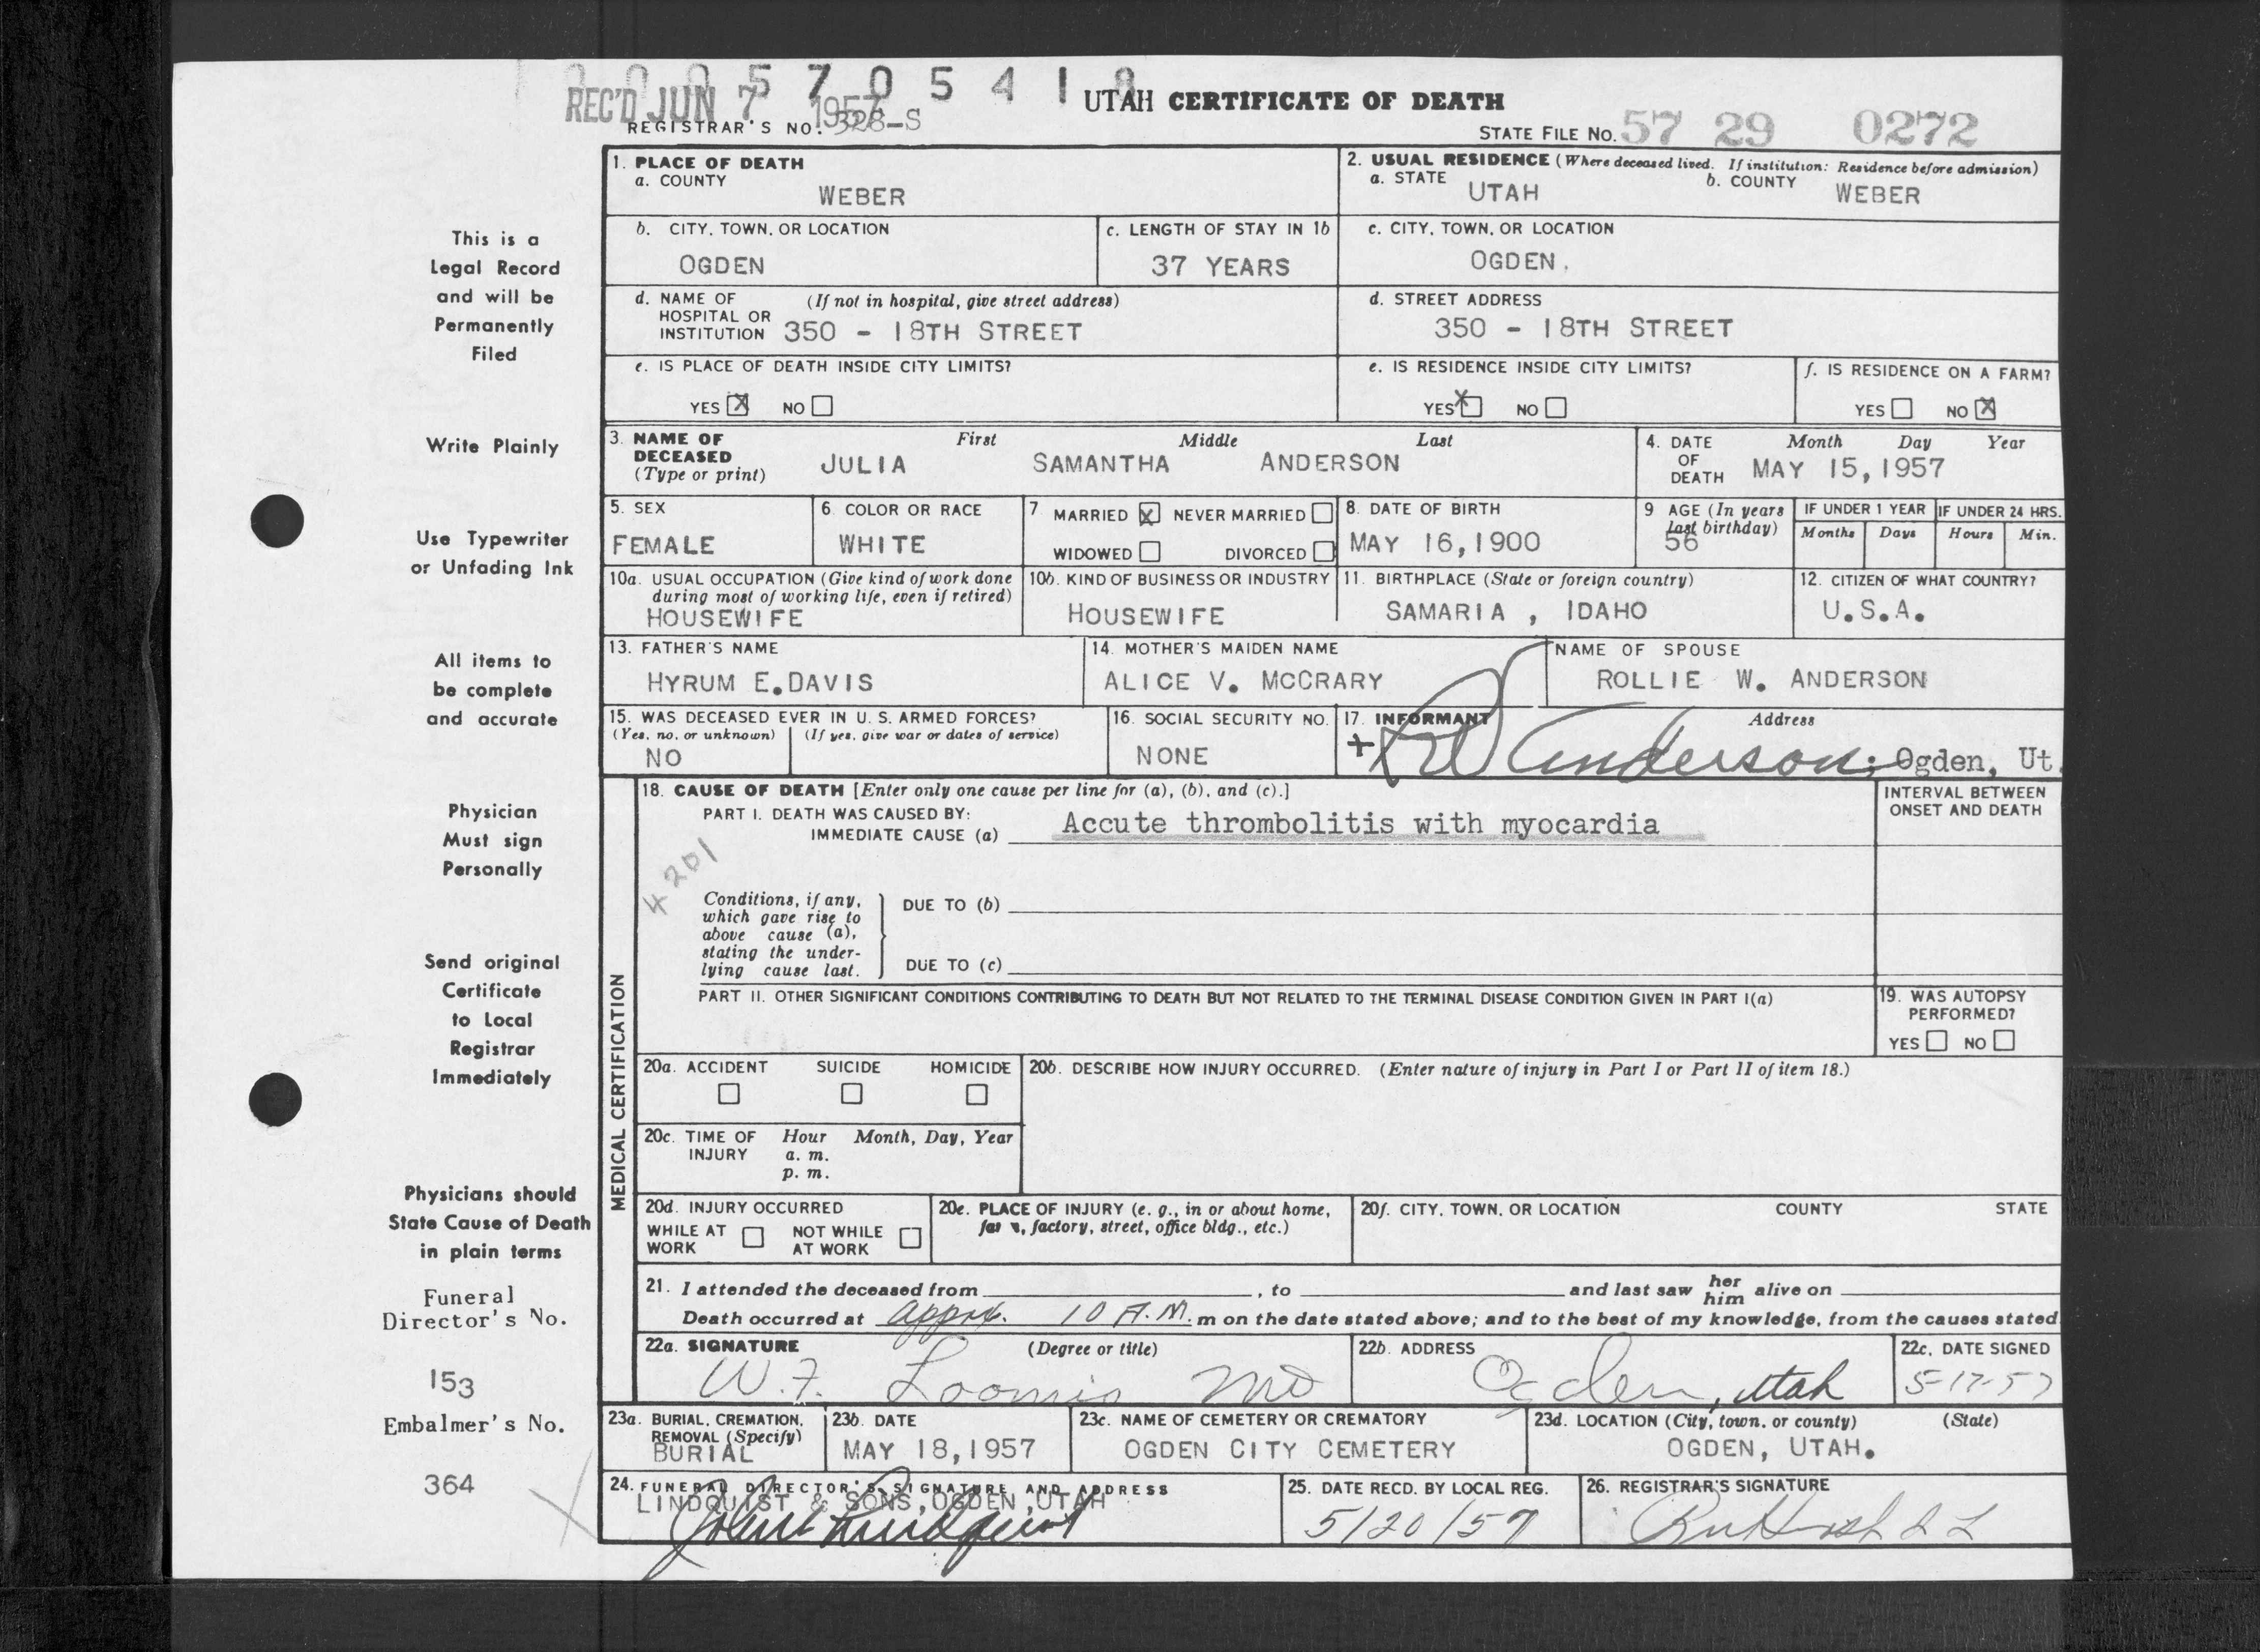 5705418
REC'D JUN 7 1957
UTAH CERTIFICATE OF DEATH
REGISTRAR'S NO. 328-S
STATE FILE NO. 57 29 0272
This is a
Legal Record
and will be
Permanently
Filed
Write Plainly
Use Typewriter
or Unfading Ink
All items to
be complete
and accurate
Physician
Must sign
Personally
Send original
Certificate
to Local
Registrar
Immediately
Physicians should
State Cause of Death
in plain terms
Funeral
Director's No.
153
Embalmer's No.
364
1. PLACE OF DEATH
a. COUNTY
WEBER
2. USUAL RESIDENCE (Where deceased lived. If institution: Residence before admission)
a. STATE UTAH b. COUNTY WEBER
b. CITY, TOWN, OR LOCATION
OGDEN
c. LENGTH OF STAY IN 1b
37 YEARS
c. CITY, TOWN, OR LOCATION
OGDEN.
d. NAME OF (If not in hospital, give street address)
HOSPITAL OR
INSTITUTION 350 - 18TH STREET
d. STREET ADDRESS
350 - 18TH STREET
e. IS PLACE OF DEATH INSIDE CITY LIMITS?
YES X NO
e. IS RESIDENCE INSIDE CITY LIMITS?
YES X NO
f. IS RESIDENCE ON A FARM?
YES NO X
3. NAME OF First Middle Last
DECEASED
(Type or print) JULIA SAMANTHA ANDERSON
4. DATE Month Day Year
OF
DEATH MAY 15, 1957
5. SEX
FEMALE
6. COLOR OR RACE
WHITE
7 MARRIED X NEVER MARRIED
WIDOWED DIVORCED
8. DATE OF BIRTH
MAY 16, 1900
9 AGE (In years
last birthday)
56
IF UNDER 1 YEAR
Months Days
IF UNDER 24 HRS.
Hours Min.
10a. USUAL OCCUPATION (Give kind of work done
during most of working life, even if retired)
HOUSEWIFE
10b. KIND OF BUSINESS OR INDUSTRY
HOUSEWIFE
11. BIRTHPLACE (State or foreign country)
SAMARIA , IDAHO
12. CITIZEN OF WHAT COUNTRY?
U.S.A.
13. FATHER'S NAME
HYRUM E. DAVIS
14. MOTHER'S MAIDEN NAME
ALICE V. MCCRARY
NAME OF SPOUSE
ROLLIE W. ANDERSON
15. WAS DECEASED EVER IN U. S. ARMED FORCES?
(Yes, no, or unknown) (If yes, give war or dates of service)
NO
16. SOCIAL SECURITY NO.
NONE
17. INFORMANT Address
Anderson; Ogden, Ut.
MEDICAL CERTIFICATION
18. CAUSE OF DEATH [Enter only one cause per line for (a), (b), and (c).]
PART I. DEATH WAS CAUSED BY:
IMMEDIATE CAUSE (a) Accute thrombolitis with myocardia
INTERVAL BETWEEN
ONSET AND DEATH
4201
Conditions, if any,
which gave rise to
above cause (a),
stating the under-
lying cause last.
DUE TO (b)
DUE TO (c)
PART II. OTHER SIGNIFICANT CONDITIONS CONTRIBUTING TO DEATH BUT NOT RELATED TO THE TERMINAL DISEASE CONDITION GIVEN IN PART I(a)
19. WAS AUTOPSY
PERFORMED?
YES NO
20a. ACCIDENT SUICIDE HOMICIDE
20b. DESCRIBE HOW INJURY OCCURRED. (Enter nature of injury in Part I or Part II of item 18.)
20c. TIME OF Hour Month, Day, Year
INJURY a. m.
p. m.
20d. INJURY OCCURRED
WHILE AT NOT WHILE
WORK AT WORK
20e. PLACE OF INJURY (e. g., in or about home,
factory, street, office bldg., etc.)
20f. CITY, TOWN, OR LOCATION COUNTY STATE
21. I attended the deceased from , to and last saw her him alive on
Death occurred at approx. 10 A.M. m on the date stated above; and to the best of my knowledge, from the causes stated
22a. SIGNATURE (Degree or title)
W. F. Loomis MD
22b. ADDRESS
Ogden, Utah
22c. DATE SIGNED
5-17-57
23a. BURIAL, CREMATION,
REMOVAL (Specify)
BURIAL
23b. DATE
MAY 18, 1957
23c. NAME OF CEMETERY OR CREMATORY
OGDEN CITY CEMETERY
23d. LOCATION (City, town, or county) (State)
OGDEN, UTAH.
24. FUNERAL DIRECTOR'S SIGNATURE AND ADDRESS
LINDQUIST & SONS, OGDEN, UTAH
John Lindquist
25. DATE RECD. BY LOCAL REG.
5/20/57
26. REGISTRAR'S SIGNATURE